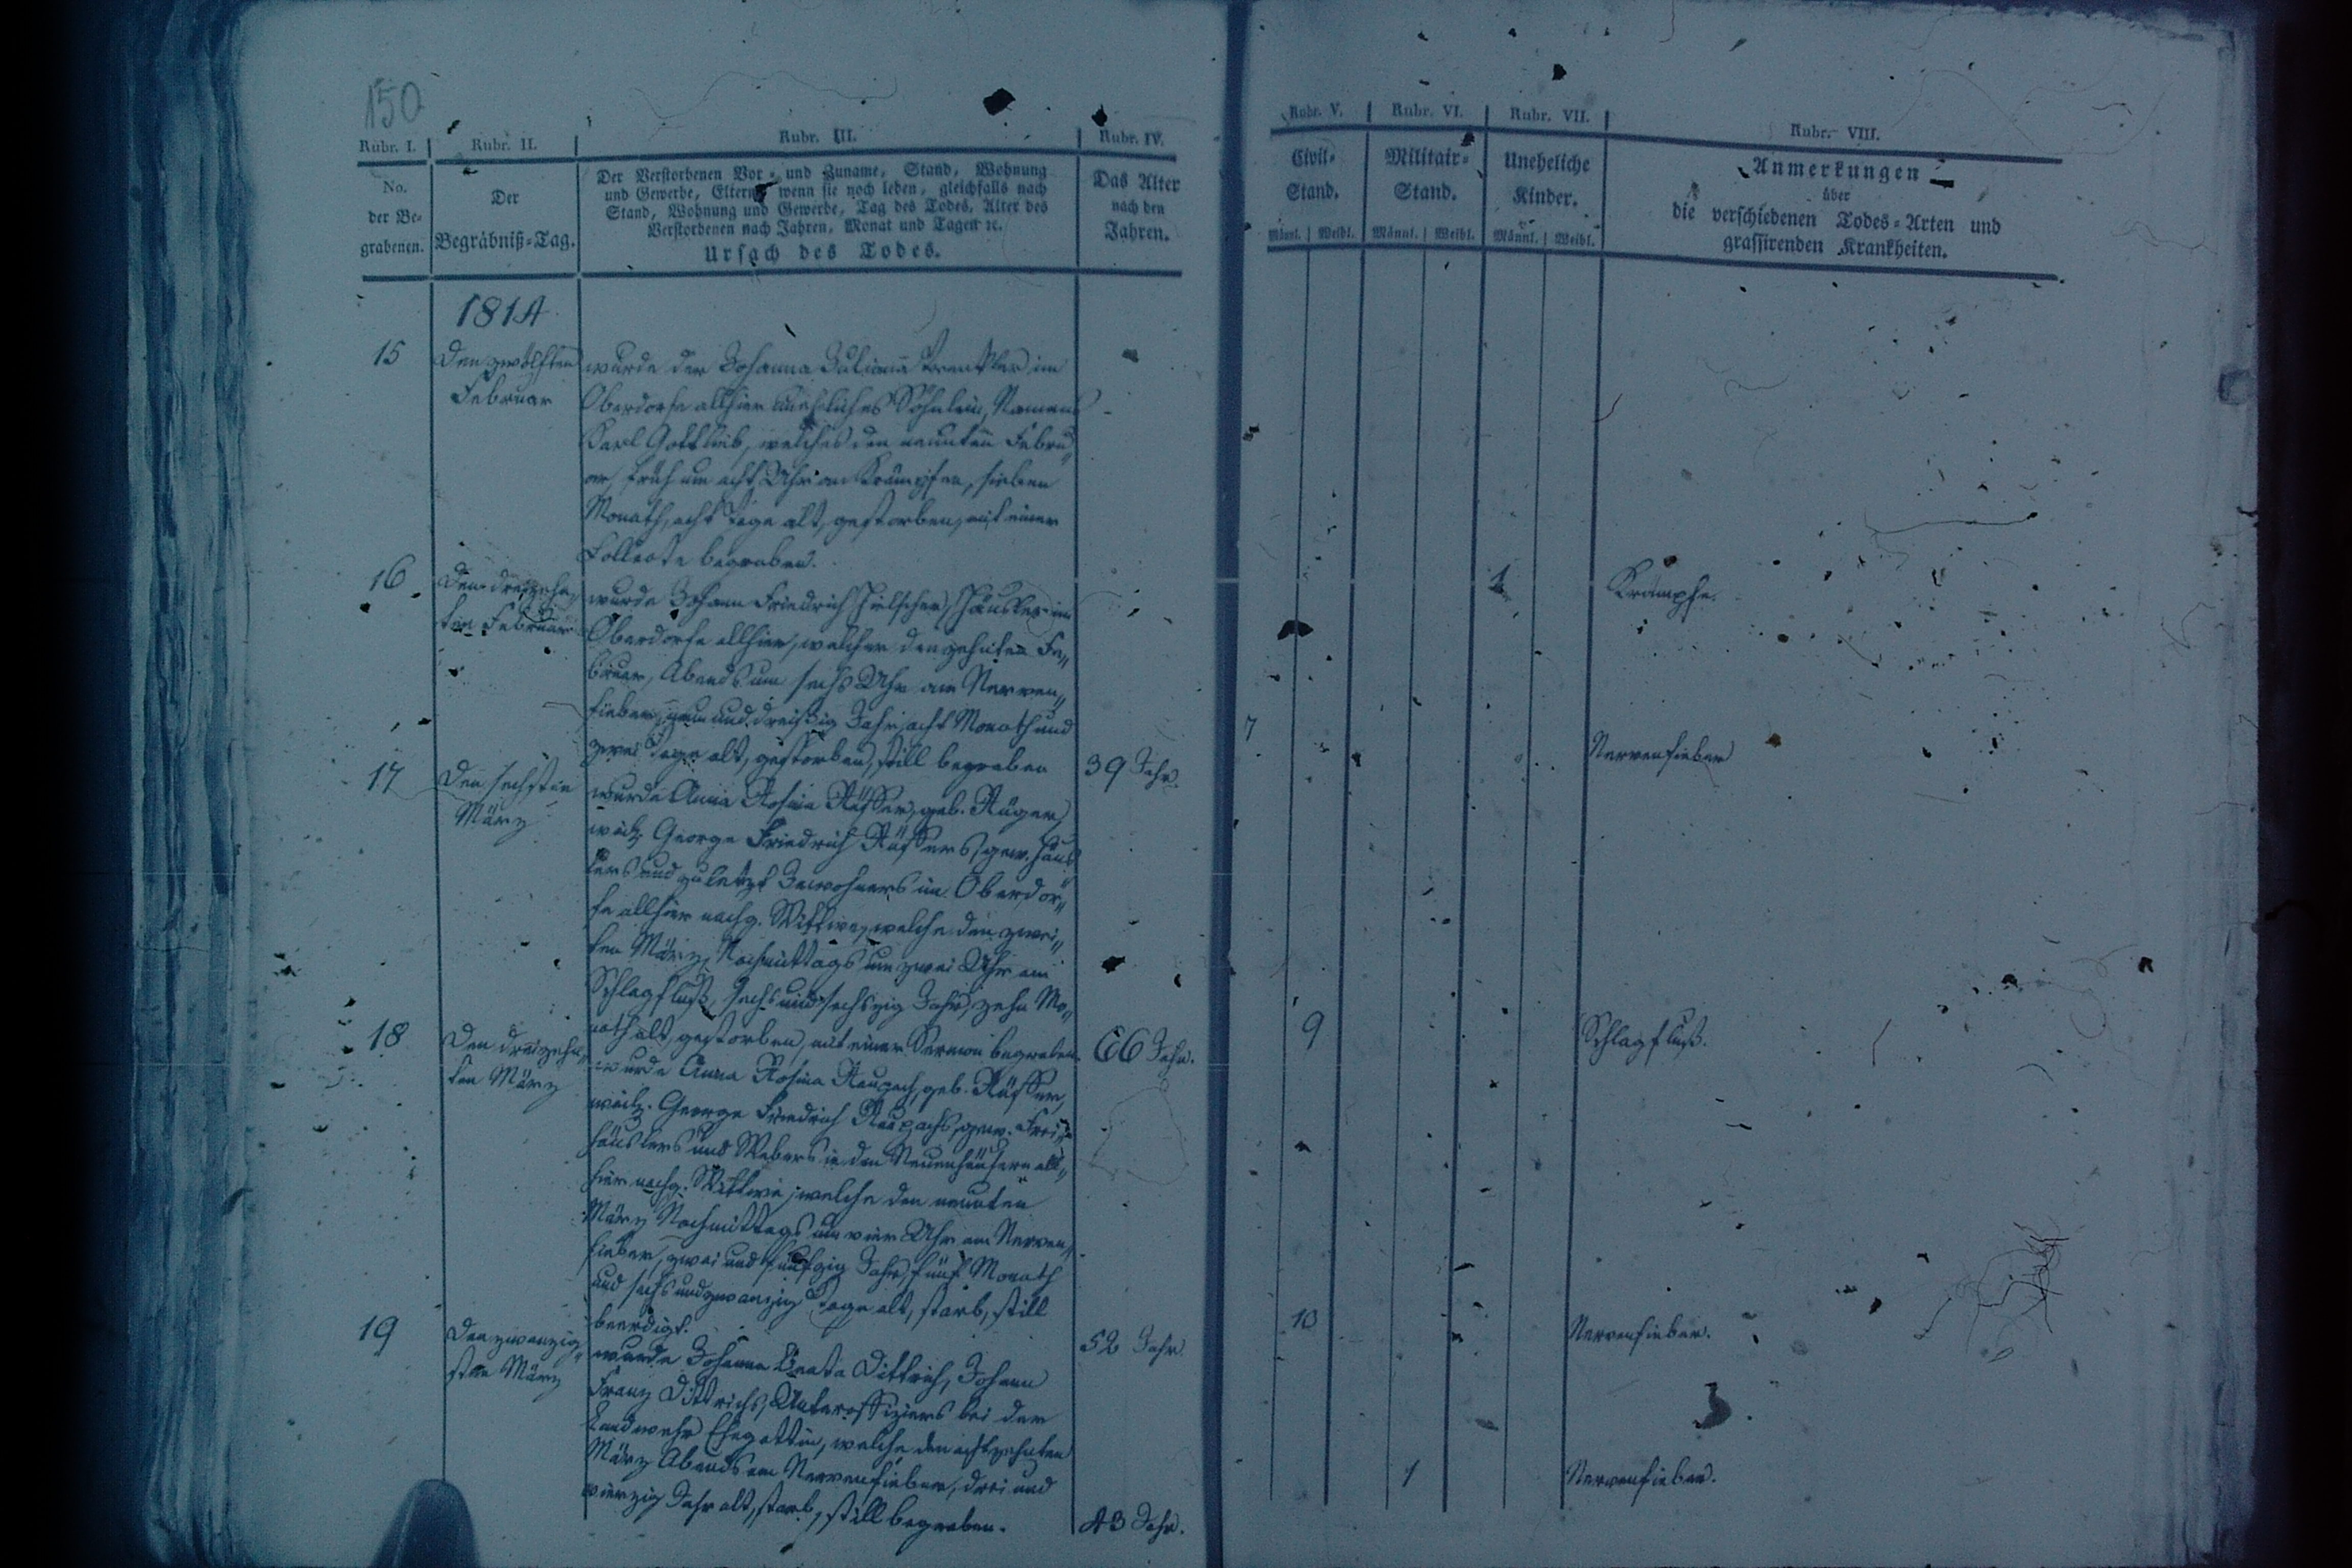 150
Rubr. I. Rubr. II. Rubr. III. Rubr. IV. Rubr. V. Rubr. VI. Rubr. VII. Rubr. VIII.
No.
der Be-
grabenen.
Der
Begräbniß-Tag.
Der Verstorbenen Vor- und Zuname, Stand, Wohnung
und Gewerbe, Eltern, wenn sie noch leben, gleichfalls nach
Stand, Wohnung und Gewerbe, Tag des Todes, Alter des
Verstorbenen nach Jahren, Monat und Tagen ꝛc.
Ursach des Todes.
Das Alter
nach den
Jahren.
Civil-
Stand.
Männl. Weibl.
Militair-
Stand.
Männl. Weibl.
Uneheliche
Kinder.
Männl. Weibl.
Anmerkungen
über
die verschiedenen Todes-Arten und
grassirenden Krankheiten.
1814
15
Den zwölften
Februar
wurde der Johanna Juliana im
Oberdorfe allhier unehliches Söhnlein, Namens
Karl Gottlieb, welches den neunten Febru„
ar, früh um acht Uhr an Krämpfen, sieben
Monath, acht Tage alt, gestorben, mit einer
Collecte begraben.
1
Krämpfe.
16
Den dreizehn„
ten Februar
wurde Johann Friedrich Hielscher, Häusler im
Oberdorfe allhier, welcher den zehnten Fe„
bruar, Abends um sechs Uhr am Nerven„
fieber, neun und dreißig Jahr, acht Monath und
zwei Tage alt, gestorben, still begraben
39 Jahr.
7
Nervenfieber
17
Den sechsten
März
wurde Anna Rosina Rüffer, geb. Rüger,
weil. George Friedrich Rüffers, gew. Häus„
lers und zuletzt Inwohners im Oberdor„
fe allhier nachg. Wittwe, welche den zwei„
ten März, Nachmittags um zwei Uhr am
Schlagfluß, sechs und sechszig Jahr, zehn Mo„
nath alt, gestorben, mit einer Sermon begraben.
66 Jahr.
9
Schlagfluß.
18
Den dreizehn„
ten März
wurde Anna Rosina Raupach, geb. Rüffer,
weil. George Friedrich Raupachs, gew. Frei„
häuslers und Webers in den Neuenhäusern all„
hier nachg. Wittwe, welche den neunten
März Nachmittags um vier Uhr am Nerven„
fieber, zwei und funfzig Jahr, fünf Monath
und sechs und zwanzig Tage alt, starb, still
beerdigt.
52 Jahr.
10
Nervenfieber.
19
Den zwanzig„
sten März
wurde Johanna Beata Dittrich, Johann
Franz Dittrichs, Unteroffiziers bei der
Landwehr Ehegattin, welche den achtzehnten
März Abends am Nervenfieber, drei und
vierzig Jahr alt, starb, still begraben.
43 Jahr.
1
Nervenfieber.